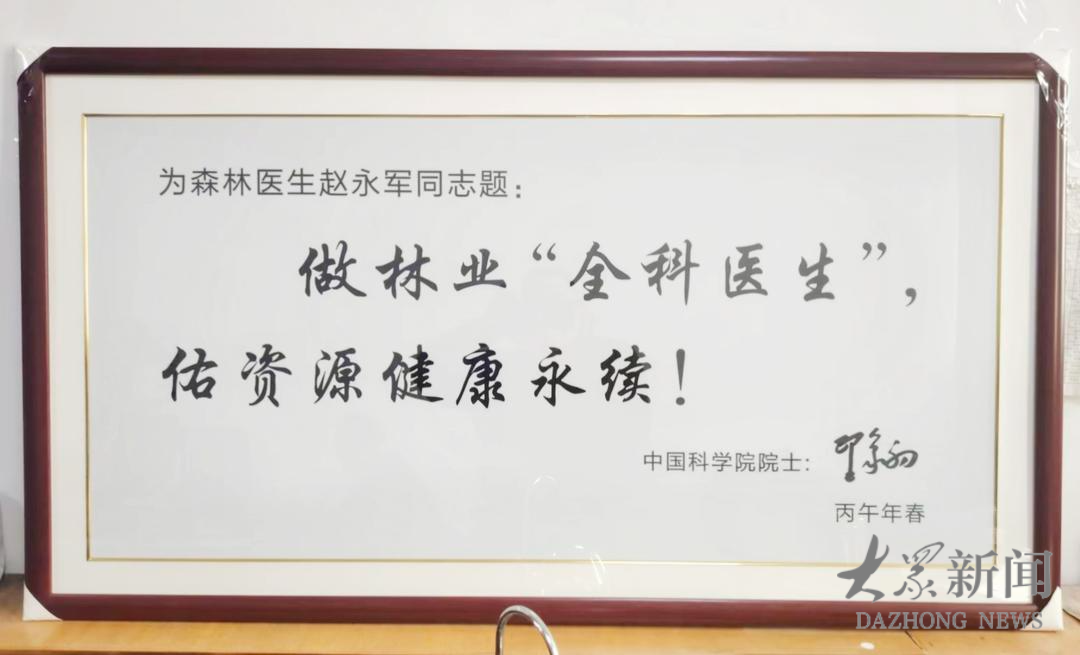 为森林医生赵永军同志题：
做林业“全科医生”，
佑资源健康永续！
中国科学院院士：
丙午年春
大众新闻
DAZHONG NEWS